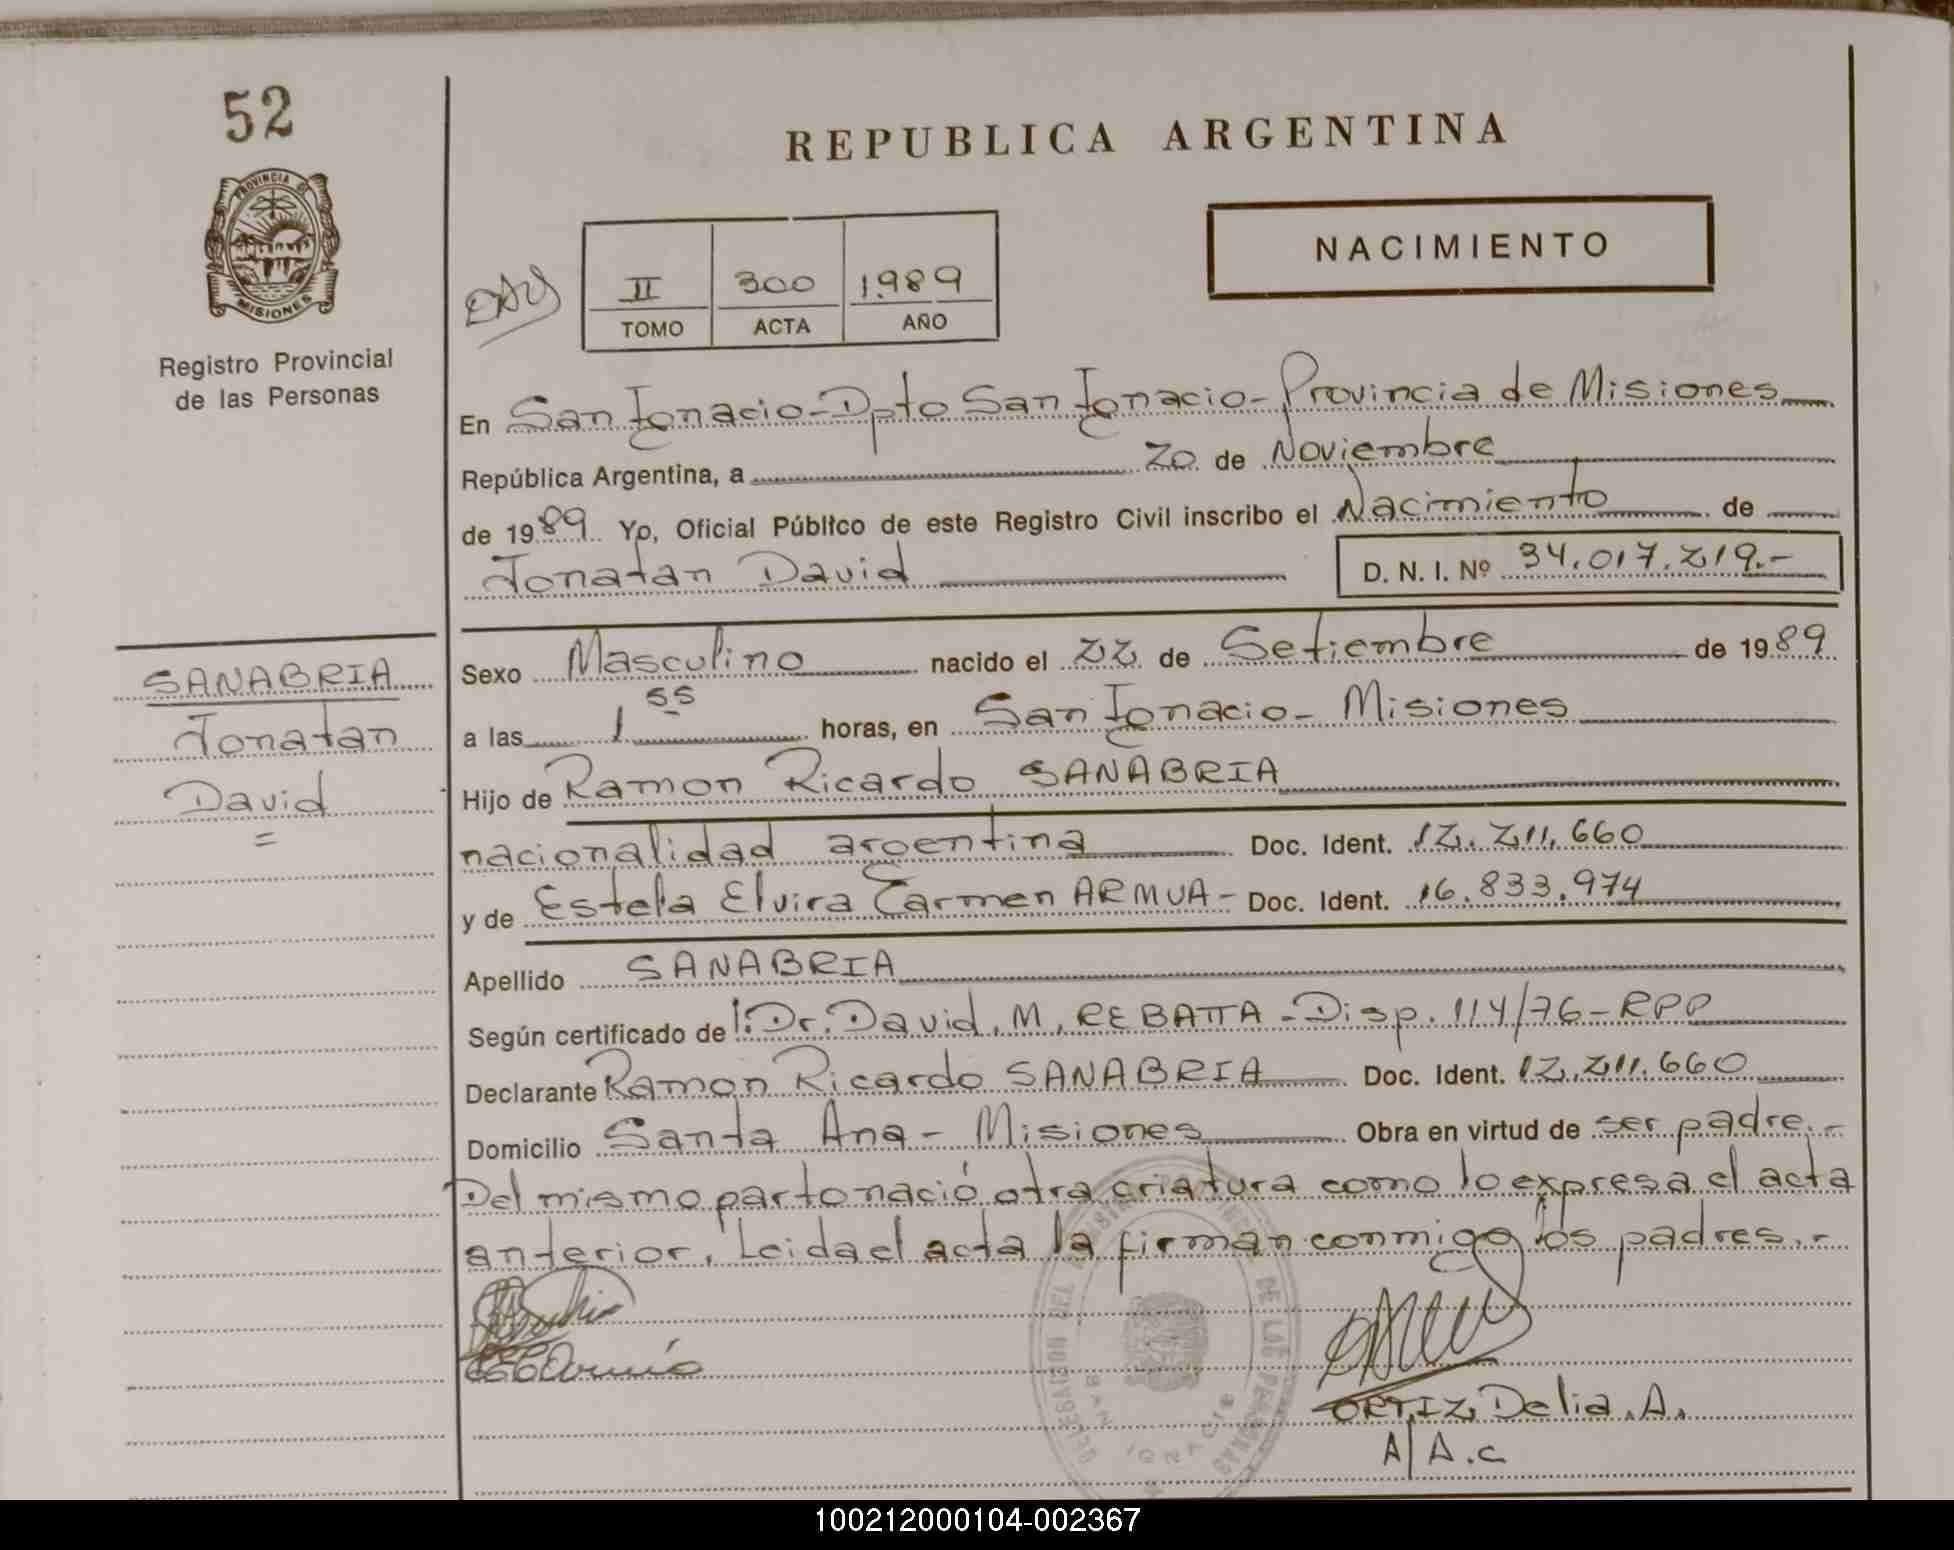 52
REPUBLICA ARGENTINA
PROVINCIA DE
MISIONES
Registro Provincial
de las Personas
NACIMIENTO
II 300 1989
TOMO ACTA AÑO
En San Ignacio - Dpto San Ignacio - Provincia de Misiones
República Argentina, a 20 de Noviembre
de 1989 Yo, Oficial Público de este Registro Civil inscribo el Nacimiento de
Jonatan David
D. N. I. Nº 34.017.219.-
SANABRIA
Jonatan
David
Sexo Masculino nacido el 22 de Setiembre de 1989
a las 1 55 horas, en San Ignacio - Misiones
Hijo de Ramon Ricardo SANABRIA
nacionalidad argentina Doc. Ident. 12.211.660
y de Estela Elvira Carmen ARMUA - Doc. Ident. 16.833.974
Apellido SANABRIA
Según certificado de l: Dr. David. M. REBATTA - Disp. 114/76 - RPP
Declarante Ramon Ricardo SANABRIA Doc. Ident. 12.211.660
Domicilio Santa Ana - Misiones Obra en virtud de ser padre.-
Del mismo parto nació otra criatura como lo expresa el acta
anterior. Leida el acta la firman conmigo los padres.-
ORTIZ Delia. A.
A/A.c
DELEGACION DEL REGISTRO PROVINCIAL DE LAS PERSONAS
SAN IGNACIO
100212000104-002367